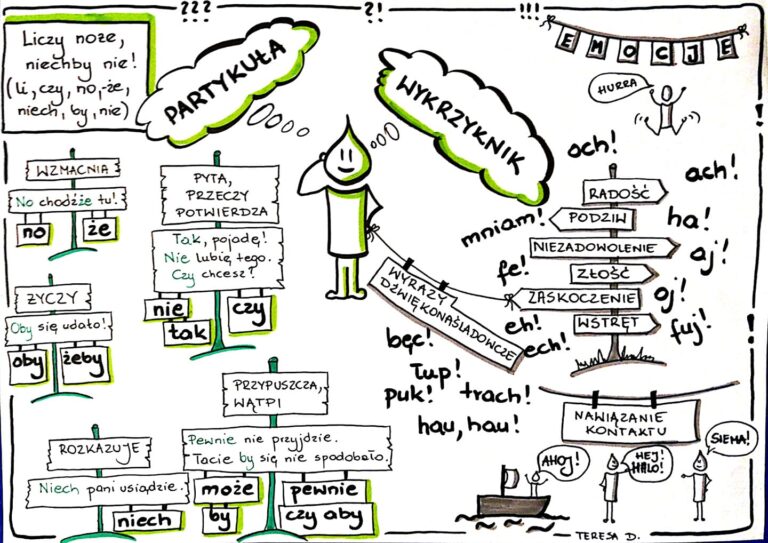 ???
?!
!!!
Liczy noże,
niechby nie!
(li, czy, no, -że,
niech, by, nie)
PARTYKUŁA
WYKRZYKNIK
EMOCJE
HURRA
WZMACNIA
No chodźże tu!
no
że
PYTA,
PRZECZY
POTWIERDZA
Tak, pojadę!
Nie lubię tego.
Czy chcesz?
nie
czy
tak
ŻYCZY
Oby się udało!
oby
żeby
ROZKAZUJE
Niech pani usiądzie.
niech
PRZYPUSZCZA,
WĄTPI
Pewnie nie przyjdzie.
Tacie by się nie spodobało.
może
pewnie
by
czy aby
och!
ach!
mniam!
ha!
aj!
fe!
oj!
eh!
ech!
fuj!
RADOŚĆ
PODZIW
NIEZADOWOLENIE
ZŁOŚĆ
ZASKOCZENIE
WSTRĘT
WYRAZY
DŹWIĘKONAŚLADOWCZE
bęc!
Tup!
puk!
trach!
hau, hau!
NAWIĄZANIE
KONTAKTU
AHOJ!
HEJ!
HALO!
SIEMA!
TERESA D.